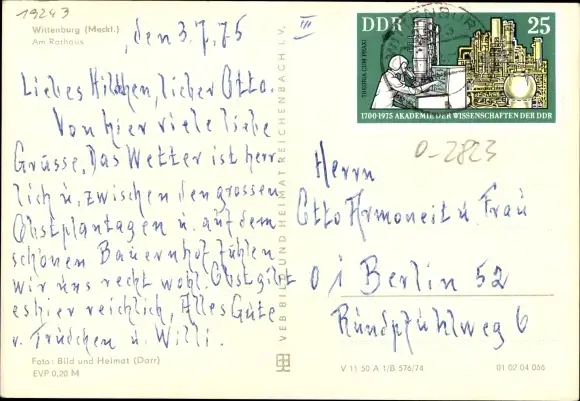 19243
Wittenburg (Meckl.)
Am Rathaus
III
, den 3.7.75
Liebes Hildchen, lieber Otto.
Von hier viele liebe
Grüsse, Das Wetter ist herr
lich u, zwischen den grossen
Obstplantagen u. auf dem
schönen Bauernhof fühlen
wir uns recht wohl. Obst gibt
es hier reichlich, Alles Gute
v. Trüdchen u. Willi.
Foto: Bild und Heimat (Darr)
EVP 0,20 M
VEB BILD UND HEIMAT REICHENBACH I. V.
DDR 25
THEORIA CUM PRAXI
1700·1975 AKADEMIE DER WISSENSCHAFTEN DER DDR
O-2823
Herrn
Otto Armoneit u. Frau
01 Berlin 52
Rundpfuhlweg 6
V 11 50 A 1/B 576/74
01 02 04 066